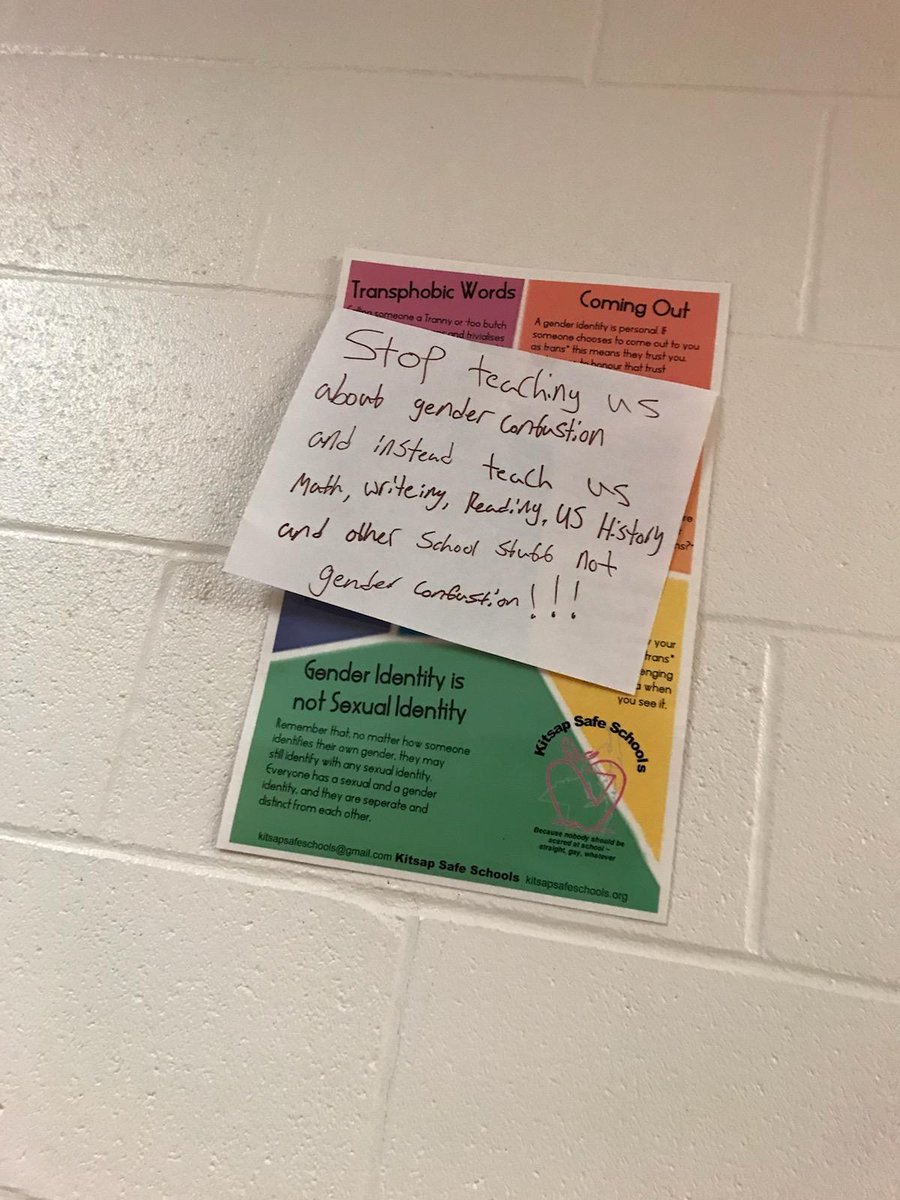 Transphobic Words
someone a Tranny or 'too butch
and trivialises
Coming Out
A gender identity is personal. If
someone chooses to come out to you
as trans* this means they trust you.
to honour that trust
Stop teaching us
about gender confustion
and instead teach us
Math, writeing, Reading, US History
and other School stuff not
gender confustion!!!
your
trans*
enging
when
you see it.
Gender Identity is
not Sexual Identity
Remember that, no matter how someone
identifies their own gender, they may
still identify with any sexual identity.
Everyone has a sexual and a gender
identity, and they are seperate and
distinct from each other.
Kitsap Safe Schools
Because nobody should be
scared at school ~
straight, gay, whatever
kitsapsafeschools@gmail.com Kitsap Safe Schools kitsapsafeschools.org